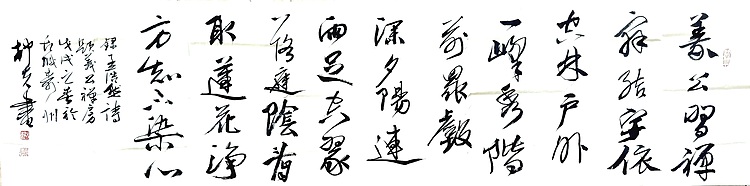 義公習禪
寂結宇依
空林戶外
一峰秀階
前眾壑
深夕陽連
雨足空翠
落庭陰看
取蓮花淨
方知不染心
錄孟浩然詩
題義公禪房
戊戌之春於
州
柳 書